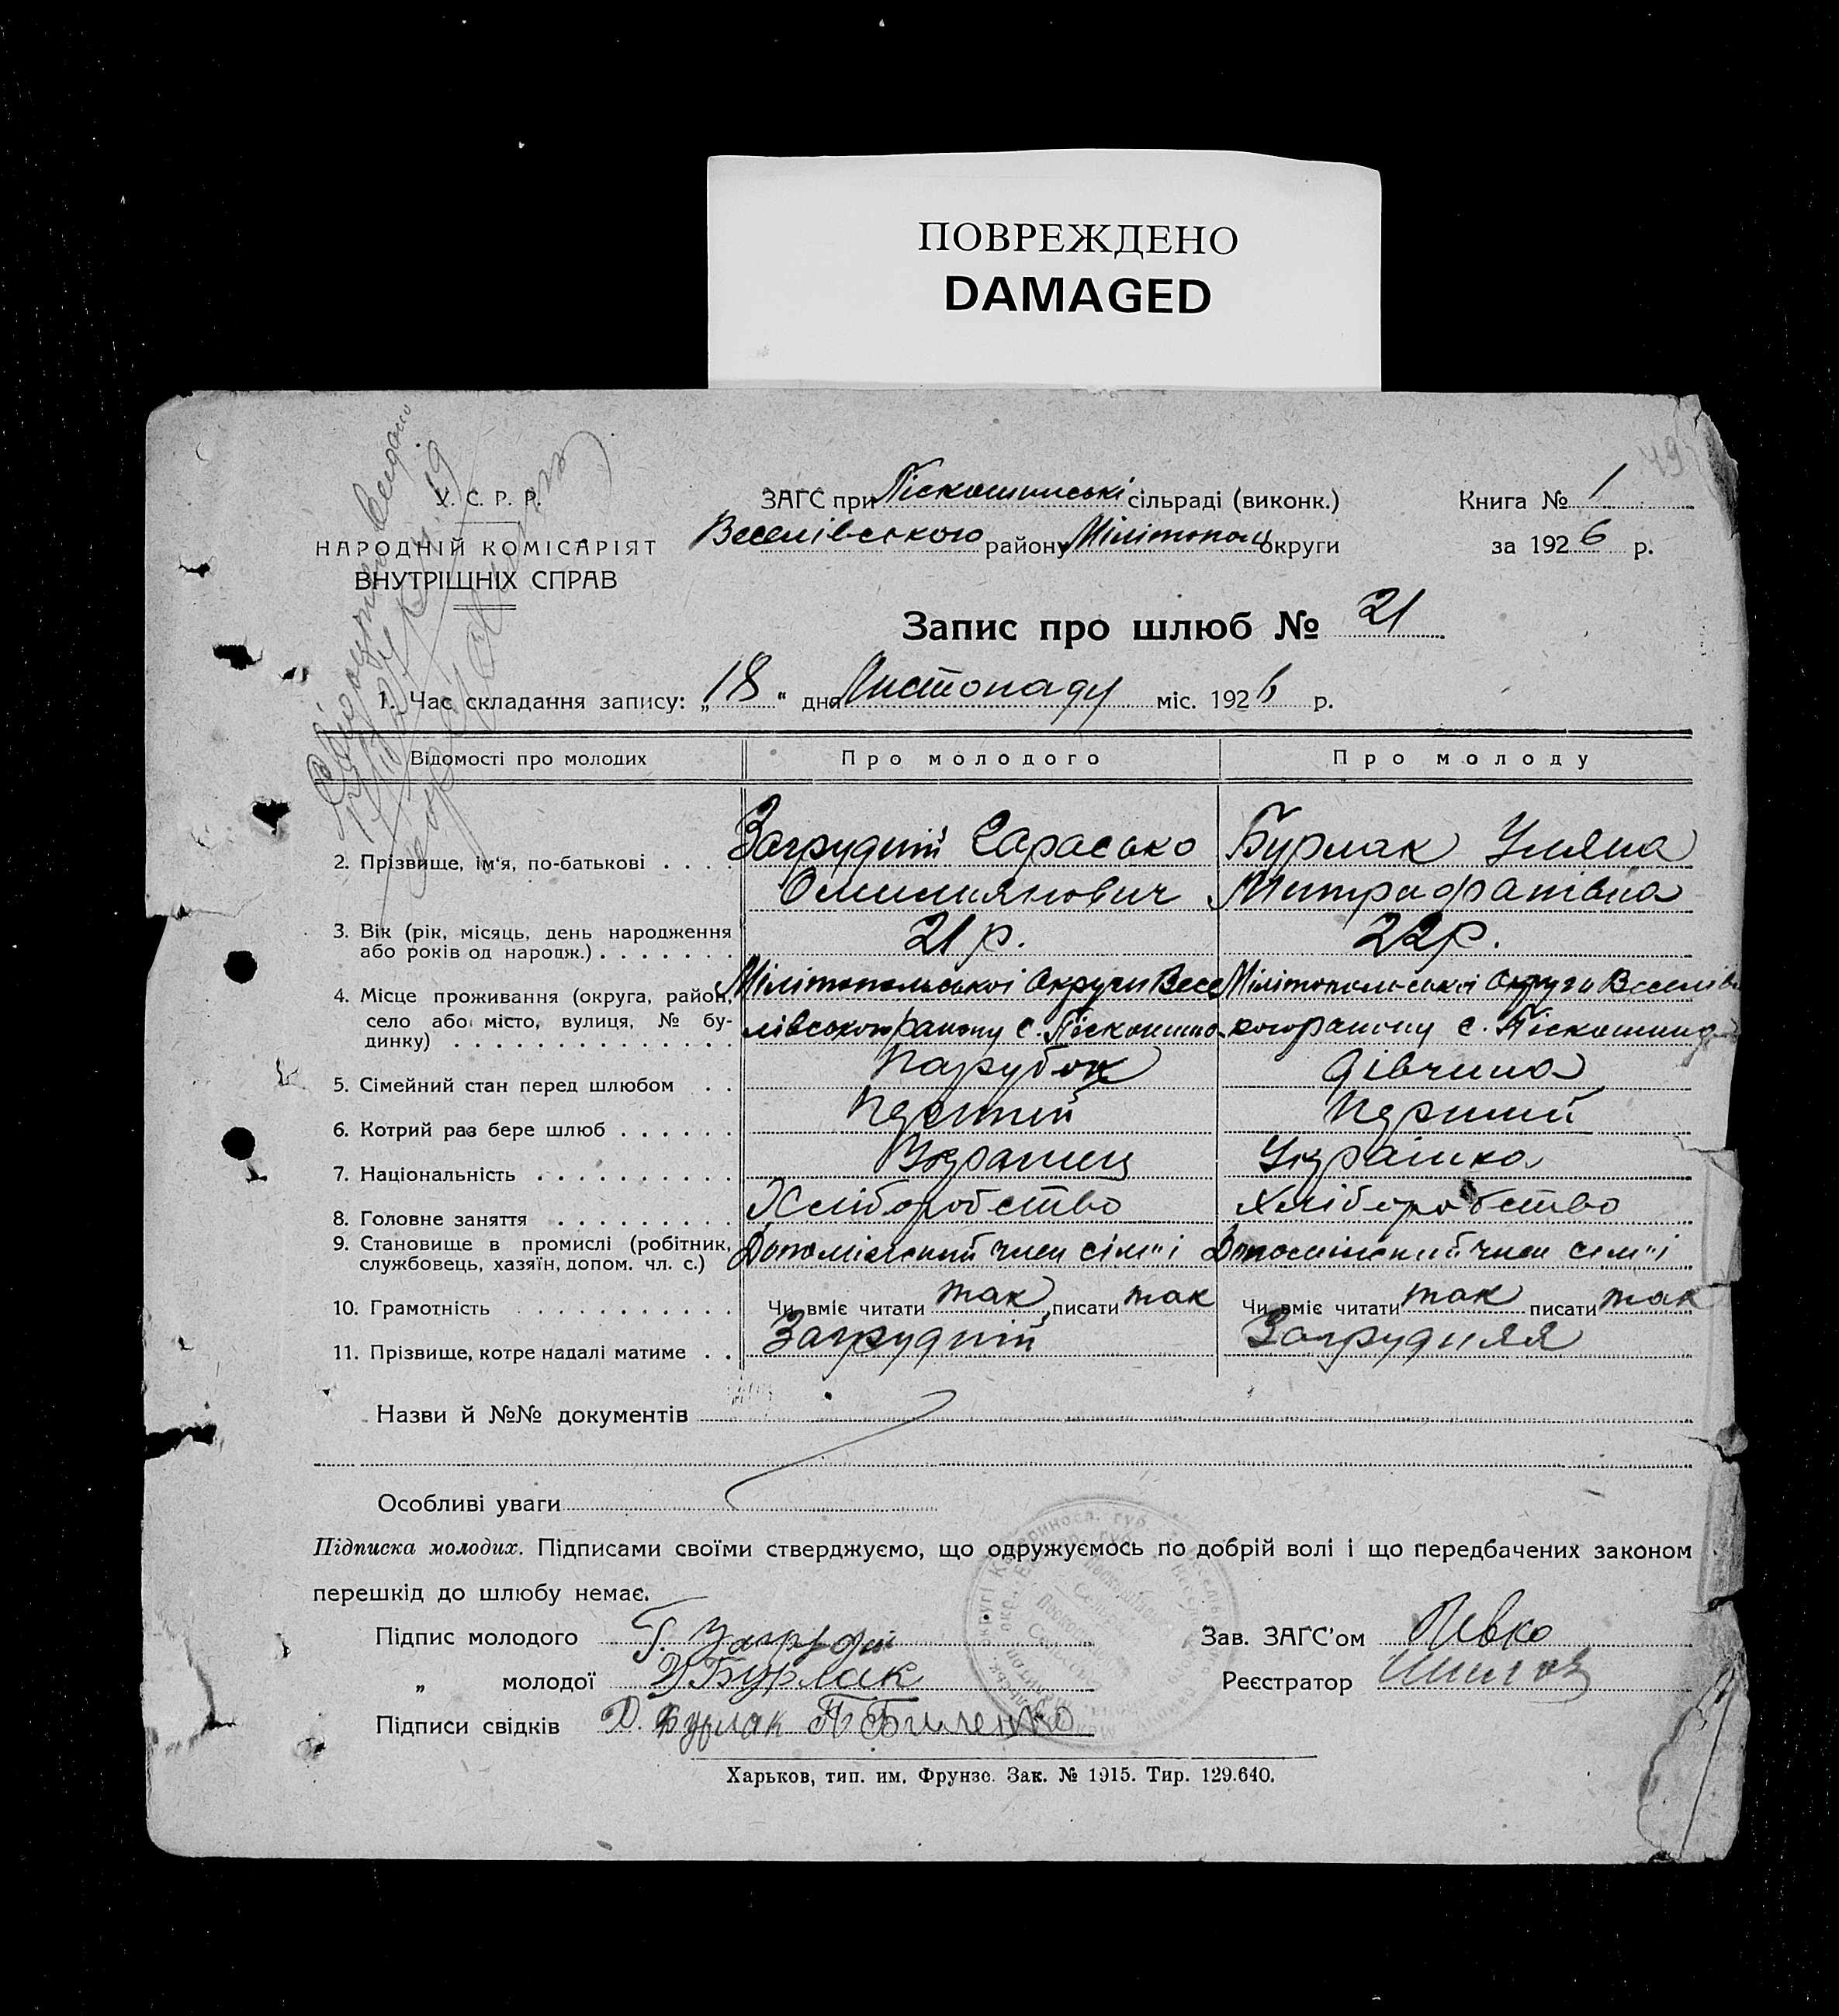 ПОВРЕЖДЕНО
DAMAGED
49
У. С. Р. Р.
НАРОДНІЙ КОМІСАРІЯТ
ВНУТРІШНІХ СПРАВ
ЗАГС при Піскошинські сільраді (виконк.)
Веселівського району Мілітопол округи
Книга № 1
за 1926 р.
Запис про шлюб № 21
1. Час складання запису: „18“ дня Листопаду міс. 1926 р.
Відомості про молодих Про молодого Про молоду
2. Прізвище, ім'я, по-батькові . . . . Загрудній Гарасько Бурлак Уляна
Омилиянович Митрафанівна
3. Вік (рік, місяць, день народження
або років од народж.) . . . . . . . 21 р. 22 р.
4. Місце проживання (округа, район, Мілітопольської Округи Весе Мілітопольської Округи Веселів
село або місто, вулиця, № бу- лівського району с. Піскошино кого району с. Піскошино
динку) . . . . . . . . . . . . . .
5. Сімейний стан перед шлюбом . . Парубок дівчина
6. Котрий раз бере шлюб . . . . . . Перший Перший
7. Національність . . . . . . . . . . Украинец Українка
8. Головне заняття . . . . . . . . . Хліборобство Хліборобство
9. Становище в промислі (робітник, Допоміжний член сім"ї Допоміжний член сем"ї
службовець, хазяїн, допом. чл. с.)
10. Грамотність . . . . . . . . . . . Чи вміє читати так писати так Чи вміє читати так писати так
11. Прізвище, котре надалі матиме . . Загрудній Загрудняя
Назви й №№ документів
Особливі уваги
Підписка молодих. Підписами своїми стверджуємо, що одружуємось по добрій волі і що передбачених законом
перешкід до шлюбу немає.
Підпис молодого Г. Загрудній
„ молодої Бурлак
Підписи свідків Д. Бурлак П. Биленко
Зав. ЗАГС'ом Півко
Реєстратор
Харьков, тип. им. Фрунзе. Зак. № 1915. Тир. 129.640.